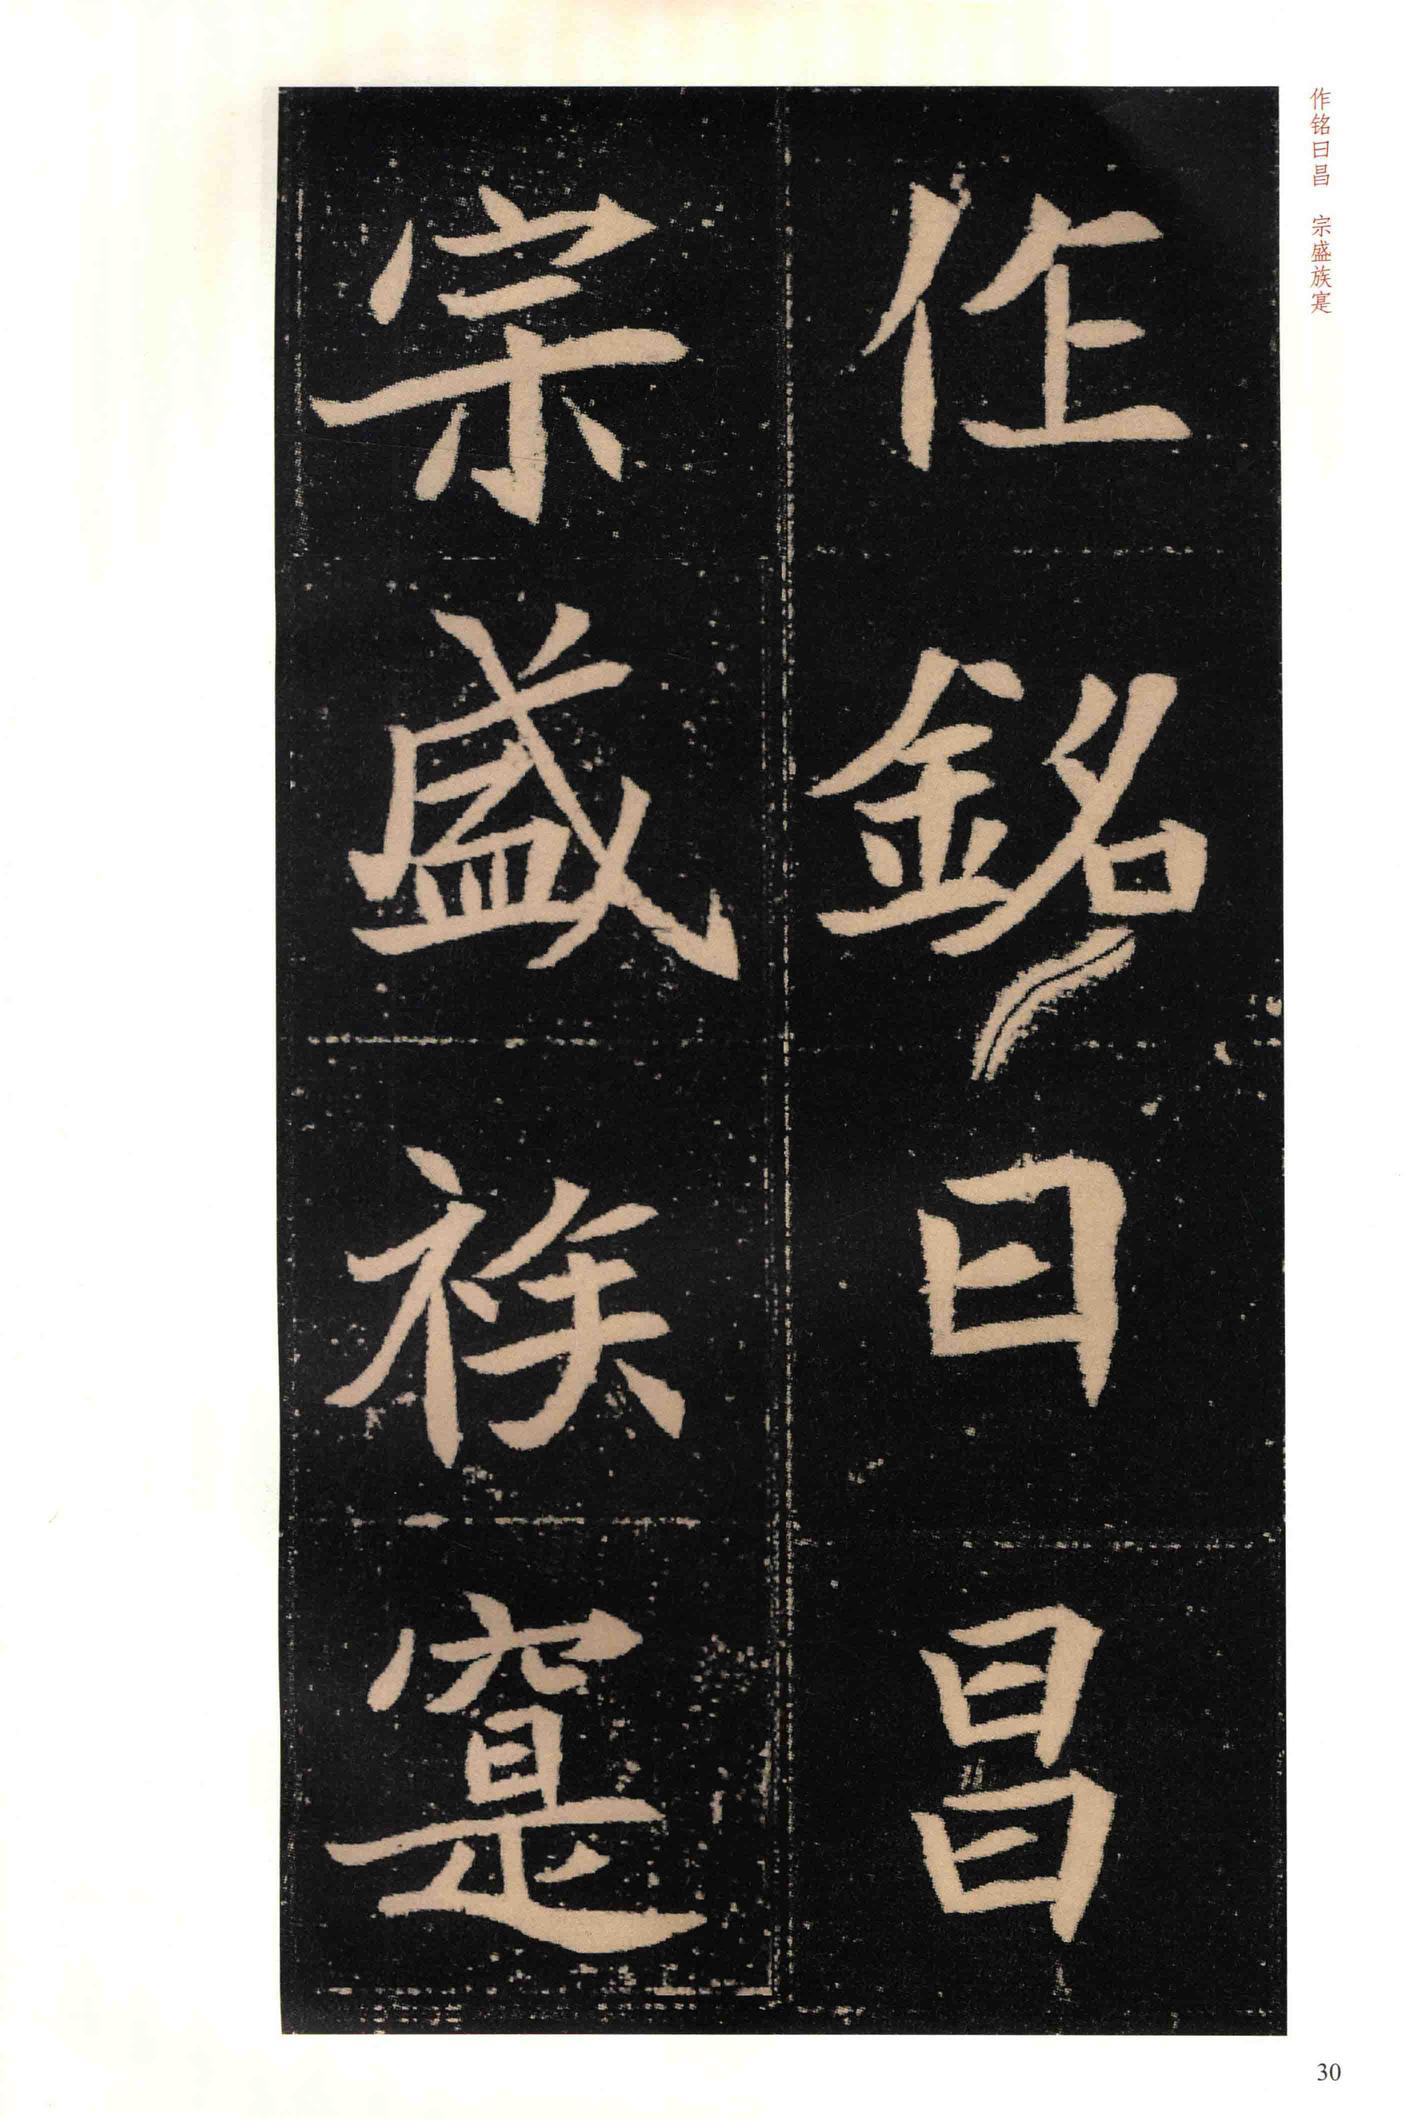 作銘曰昌
宗盛族寔
作铭曰昌 宗盛族寔
30